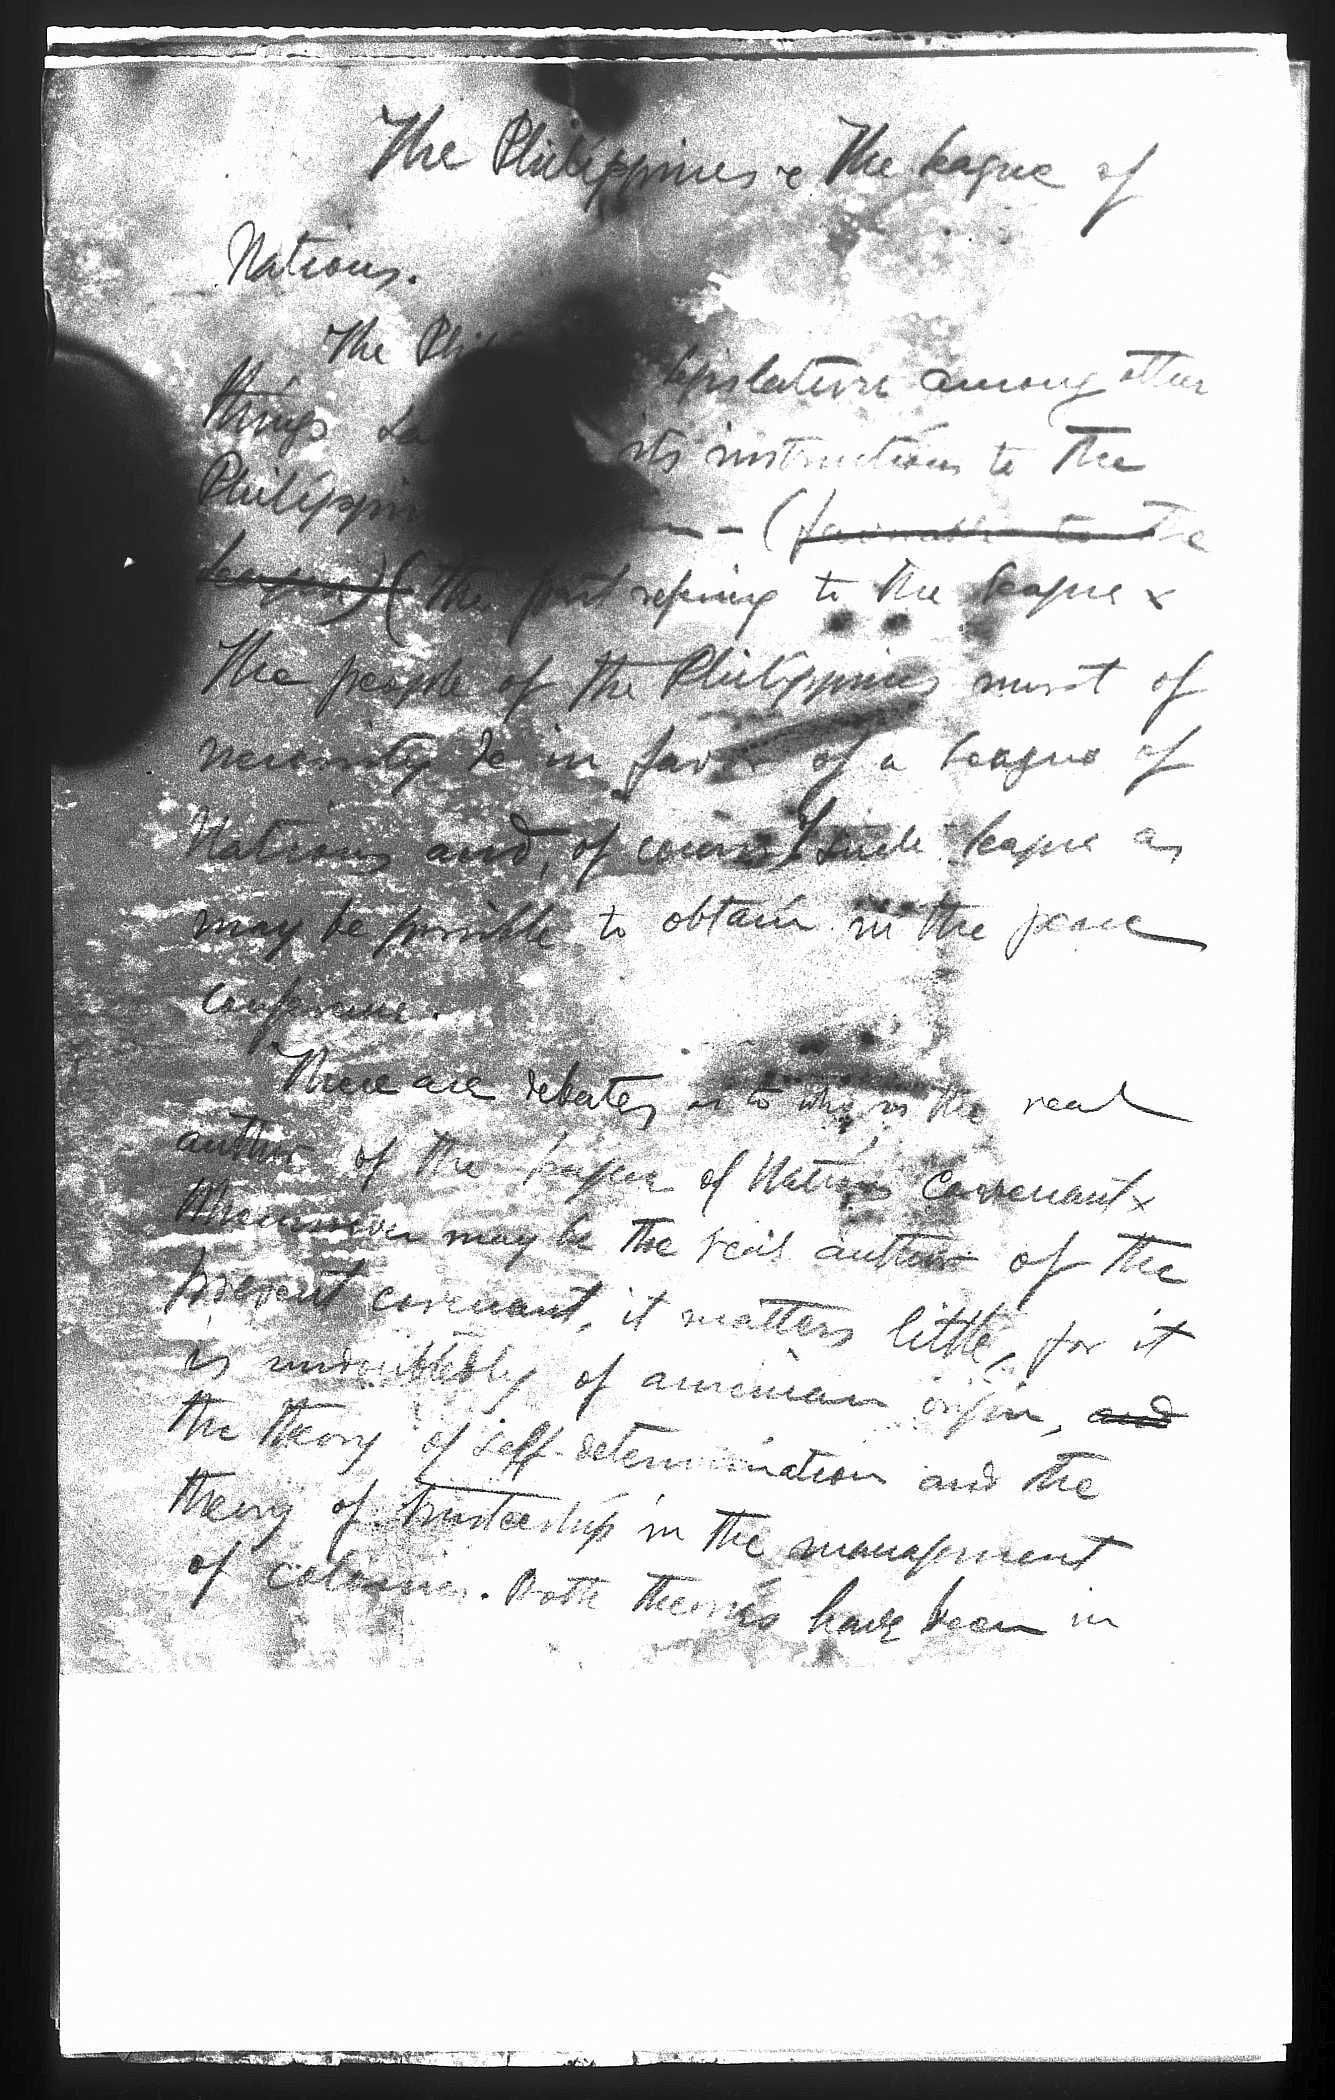 The Philippines & The League of
Nations.
The Legislature among other
things its instructions to the
(favorable to the
League) (the part refering to the League x
The people of the Philippines must of
necessity be in favor of a League of
Nations and, of course, such League as
may be possible to obtain in the peace
conference.
There are debates as to who is the real
author of the League of Nations Covenant x
Whomsoever may be the real author of the
present covenant, it matters little, for it
is undoubtedly of american origin, and
the theory of self-determination and the
theory of trusteeship in the management
of colonies. Both theories have been in